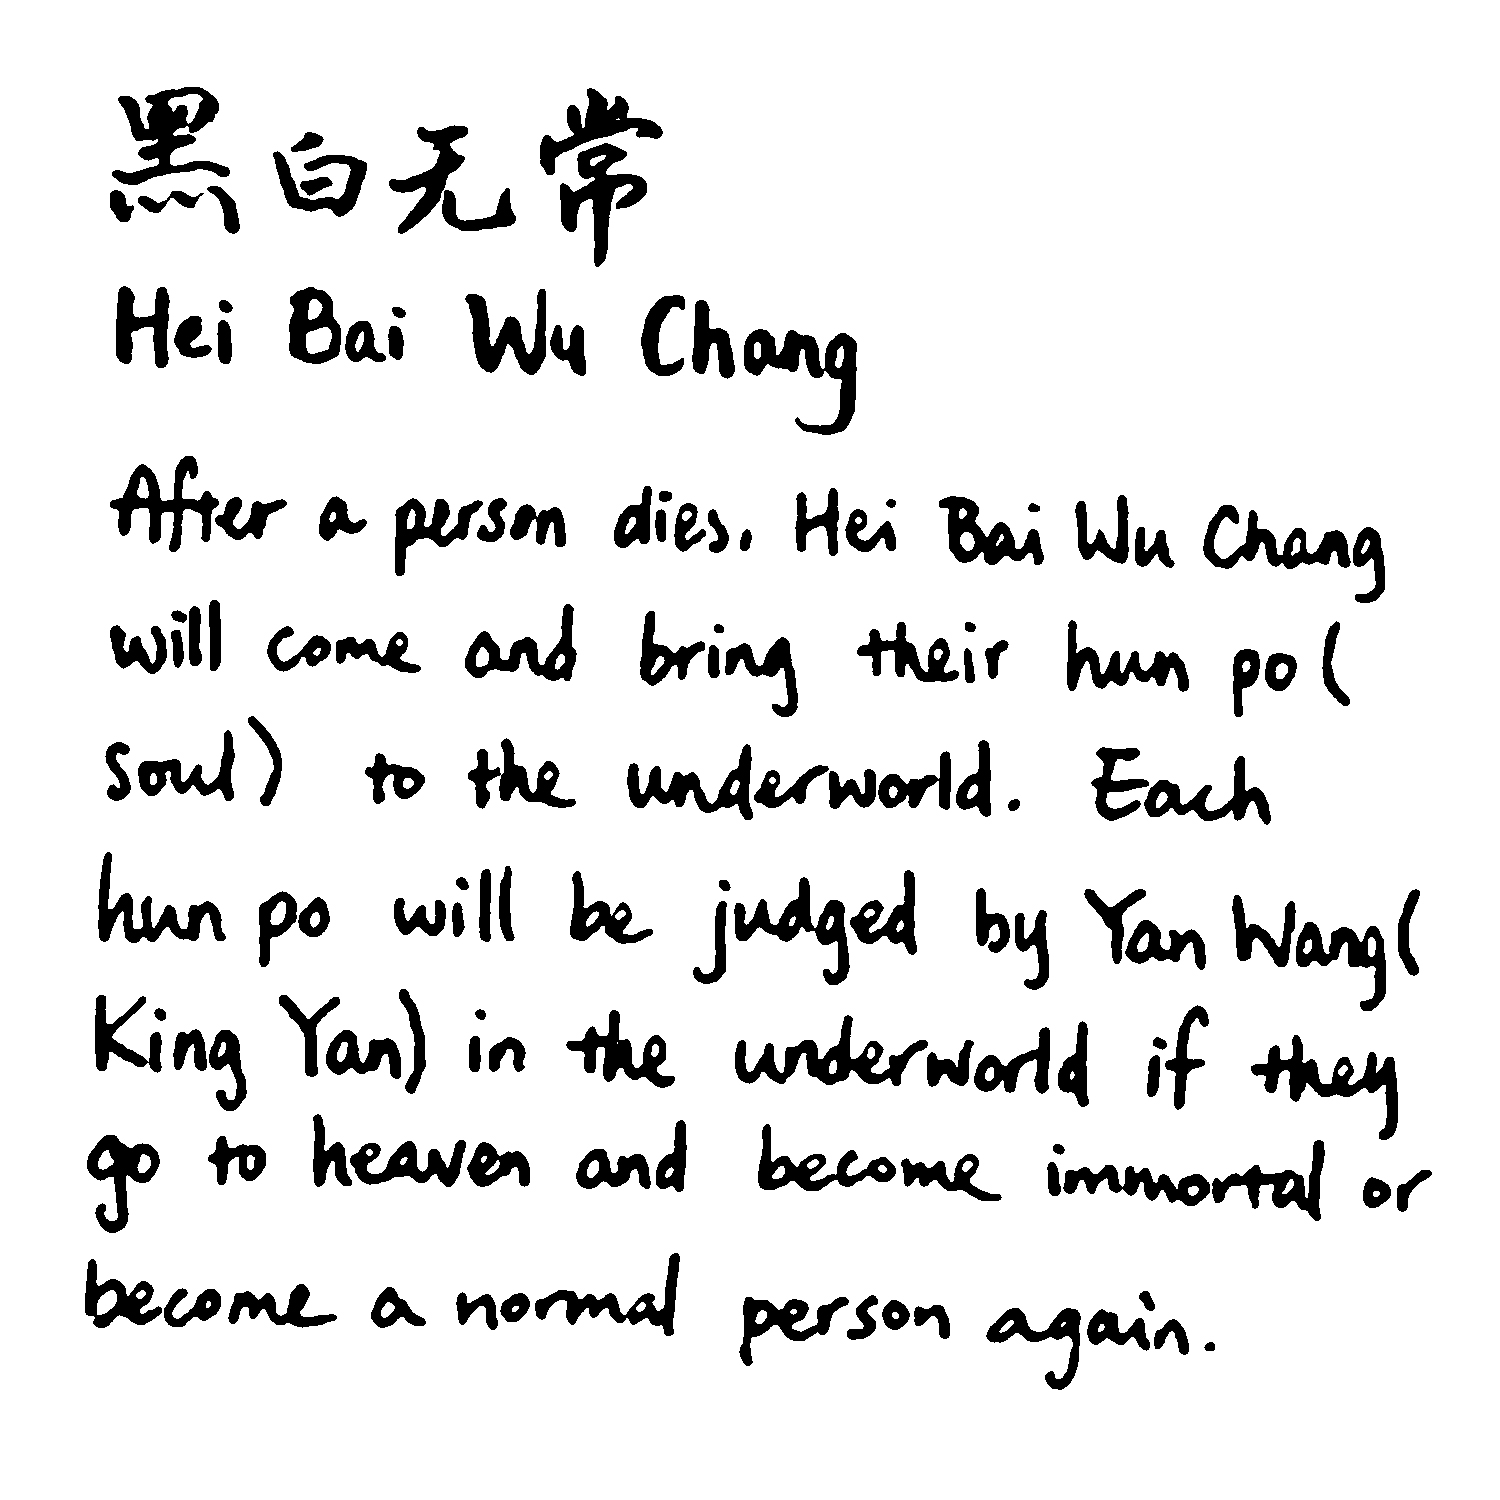 黑白无常
Hei Bai Wu Chang
After a person dies, Hei Bai Wu Chang
will come and bring their hun po (
soul) to the underworld. Each
hun po will be judged by Yan Wang (
King Yan) in the underworld if they
go to heaven and become immortal or
become a normal person again.